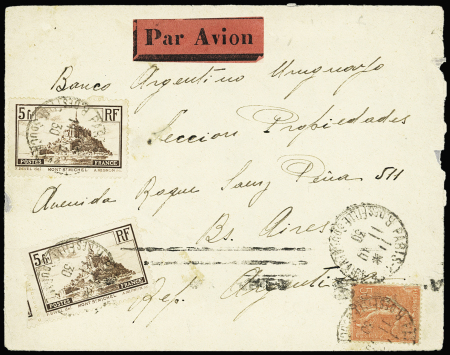 Par Avion
Banco Argentino Uruguayo
Seccion Propiedades
Avenida Roque Saenz Peña 511
Bs. Aires
Rep. Argentina
5 fr RF
POSTES FRANCE
MONT ST MICHEL
5 fr RF
POSTES FRANCE
MONT ST MICHEL
PARIS
30